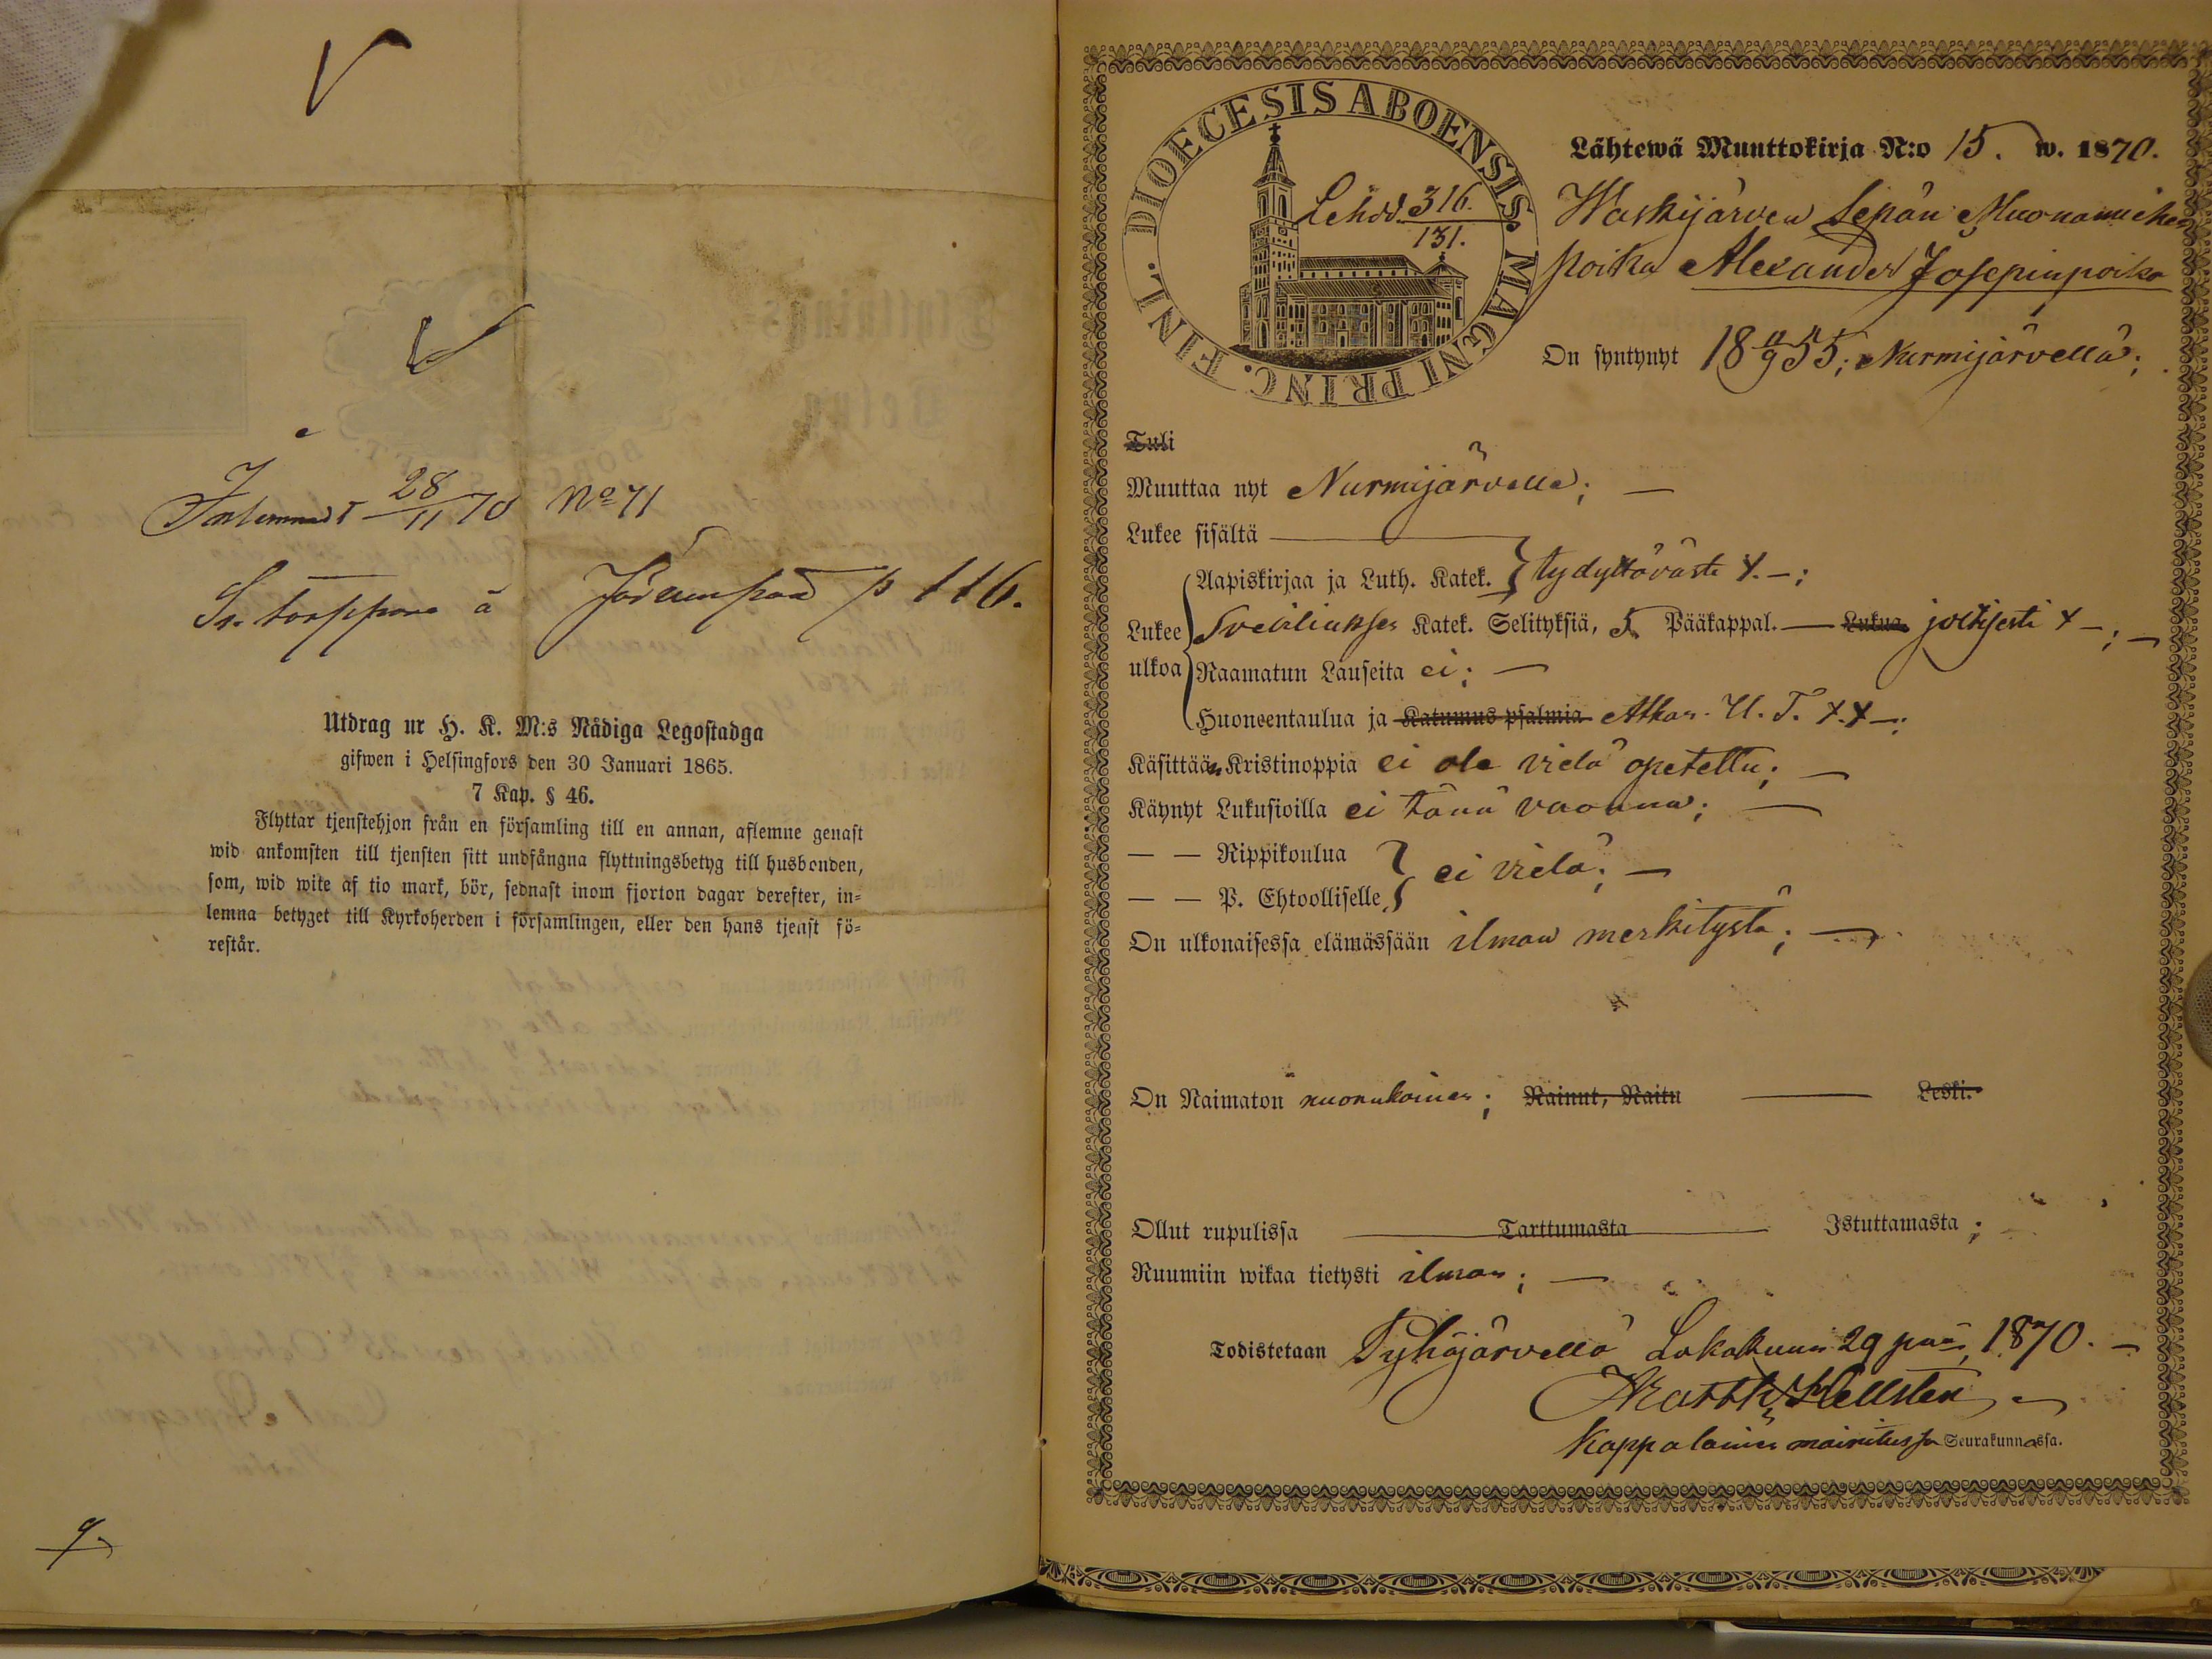 Inlemnadt 28/11 70 No 71
Sr. torppare å p 116.
Utdrag ur H. K. M:s Nådiga Legostadga
gifwen i Helsingfors den 30 Januari 1865.
7 Kap. § 46.
Flyttar tjenstehjon från en församling till en annan, aflemne genast
wid ankomsten till tjensten sitt undfångna flyttningsbetyg till husbonden,
som, wid wite af tio mark, bör, sednast inom fjorton dagar derefter, in-
lemna betyget till Kyrkoherden i församlingen, eller den hans tjenst fö-
restår.
DIOECESIS ABOENSIS MAGNI PRINC. FINL.
Lehd. 316.
131.
Lähtewä Muuttokirja N:o 15. w. 1870.
Waskijärven Sepän Muonamiehen
poika Alexander Josepinpoika
On syntynyt 18 9 55; Nurmijärvellä;
Tuli
Muuttaa nyt Nurmijärvelle; —
Lukee sisältä —
Aapiskirjaa ja Luth. Katek. tydyttäväste x.—;
Lukee ulkoa Sveiliukse Katek. Selityksiä, 5 Pääkappal. — Lukua x —; —
Raamatun Lauseita ei; —
Huoneentaulua ja Katumus psalmia Athan. U. T. x.x—;
Käsittään Kristinoppia ei ole vielä opetettu; —
Käynyt Lukusioilla ei tänä vuonna; —
— — Rippikoulua
— — P. Ehtoolliselle ei vielä; —
On ulkonaisessa elämässään ilman merkitystä; —
On Naimaton nuorukainen; Nainut, Naitu — Leski.
Ollut rupulissa — Tarttumasta — Istuttamasta;
Ruumiin wikaa tietysti ilman; —
Todistetaan Pyhäjärvellä Lokakuun 29 pnä 1870. —
Matth. Hellsten
Kappalainen mainitussa Seurakunnassa.